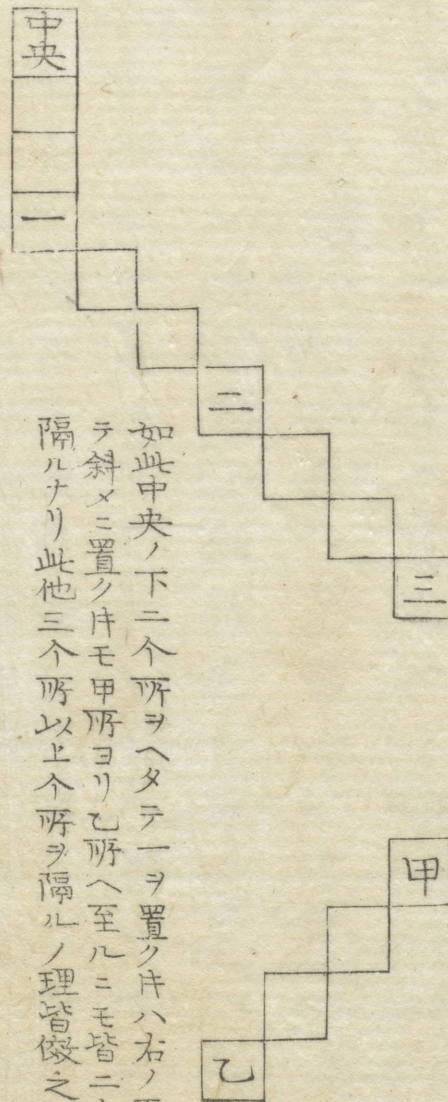 中央
一
二
三
甲
乙
如此中央ノ下二个所ヲヘタテ一ヲ置クㇳキハ右ノ
テ斜メニ置クㇳキモ甲所ヨリ乙所ヘ至ルニモ皆二
隔ルナリ此他三个所以上个所ヲ隔ルノ理皆倣之